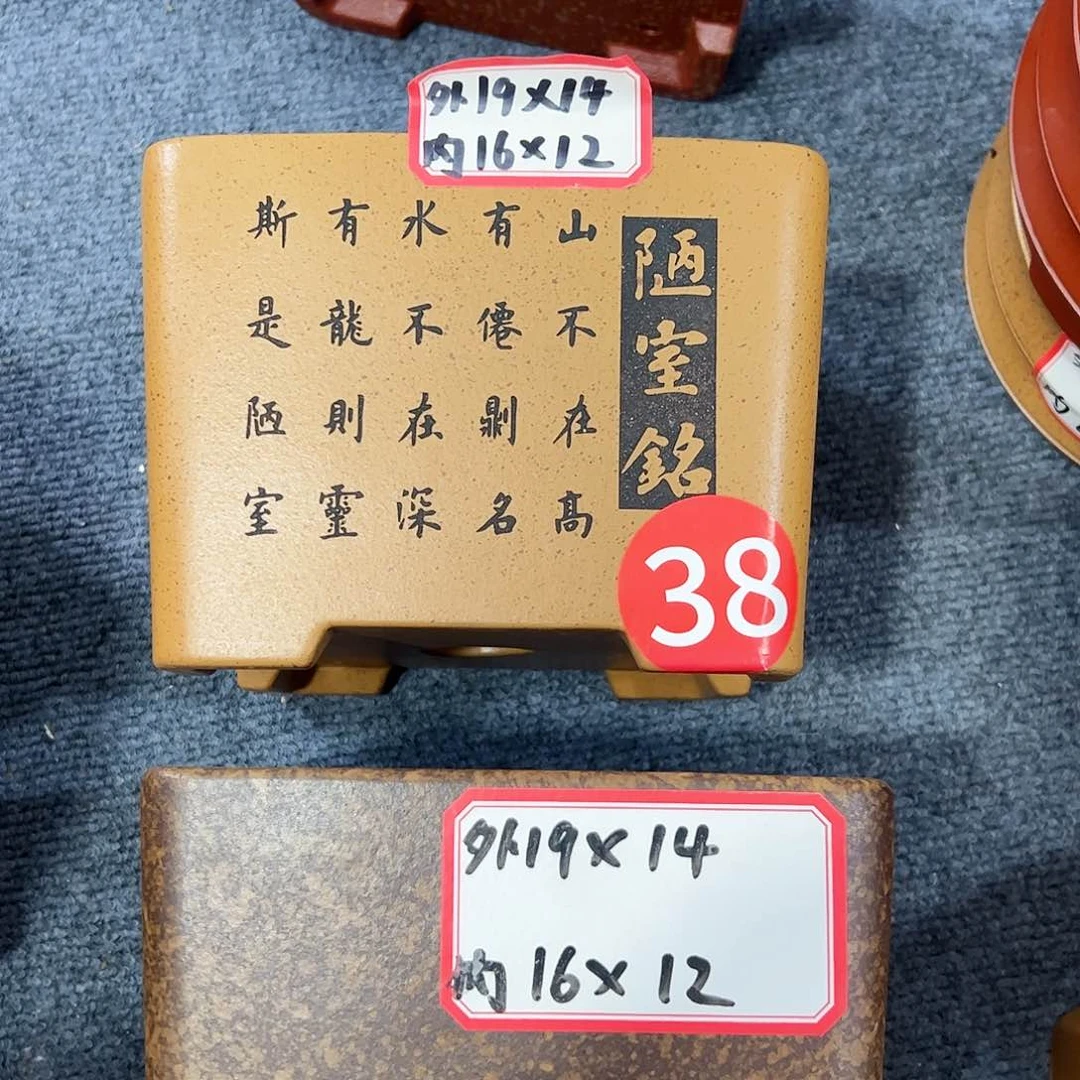 外19×14
内16×12
陋室銘
山不在高
有僊則名
水不在深
有龍則靈
斯是陋室
38
外19×14
内16×12